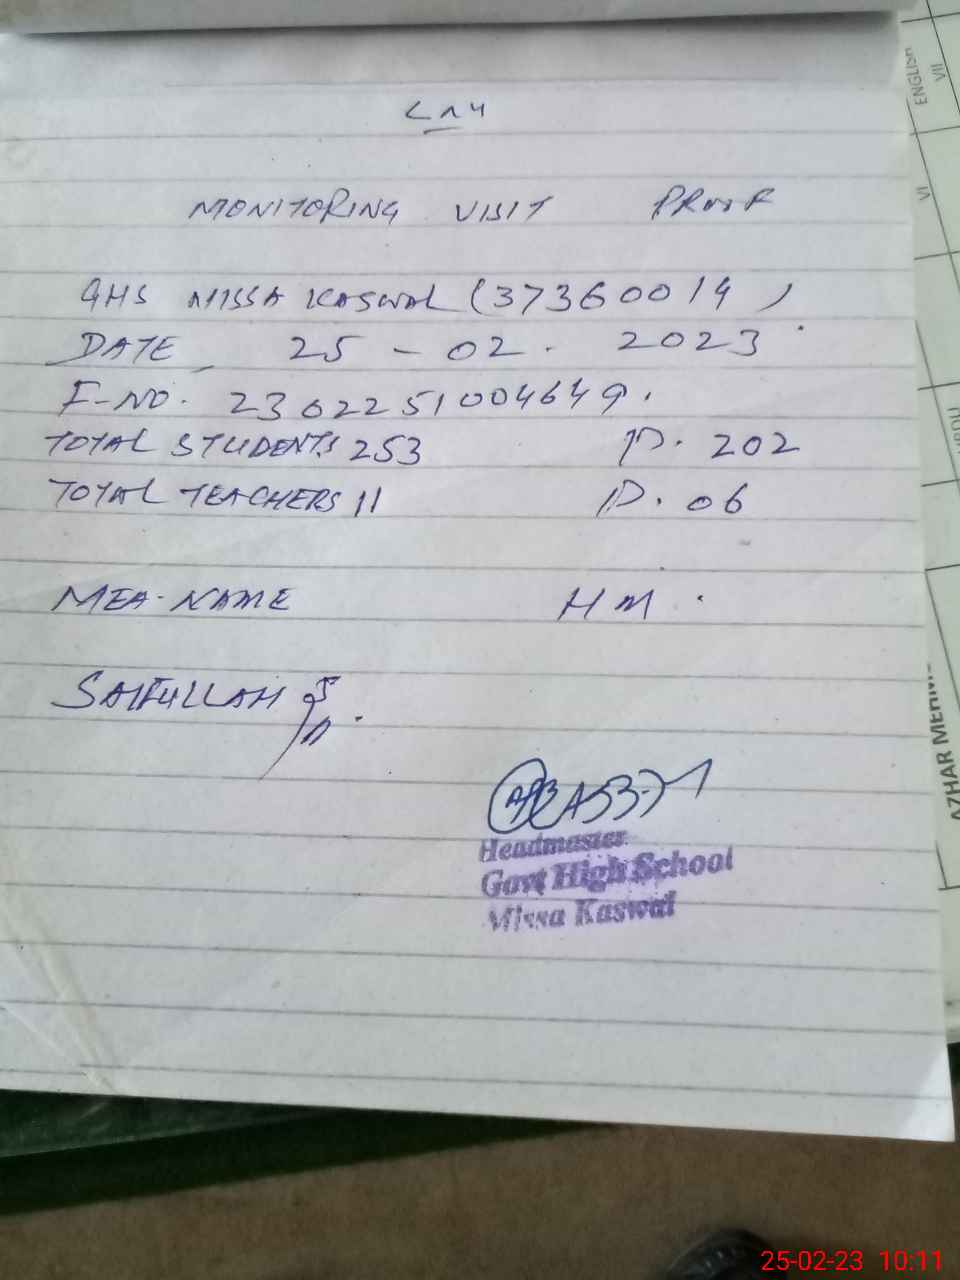 MONITORING VISIT PROOF
GHS MISSA KASWAL (37360014)
DATE 25 - 02 . 2023
F-NO. 2302251004649.
TOTAL STUDENTS 253 P. 202
TOTAL TEACHERS 11 P. 06
MEA-NAME HM.
SAIFULLAH
Headmaster
Govt High School
Missa Kaswal
ENGLISH
VII
VI
URDU
AZHAR
25-02-23 10:11